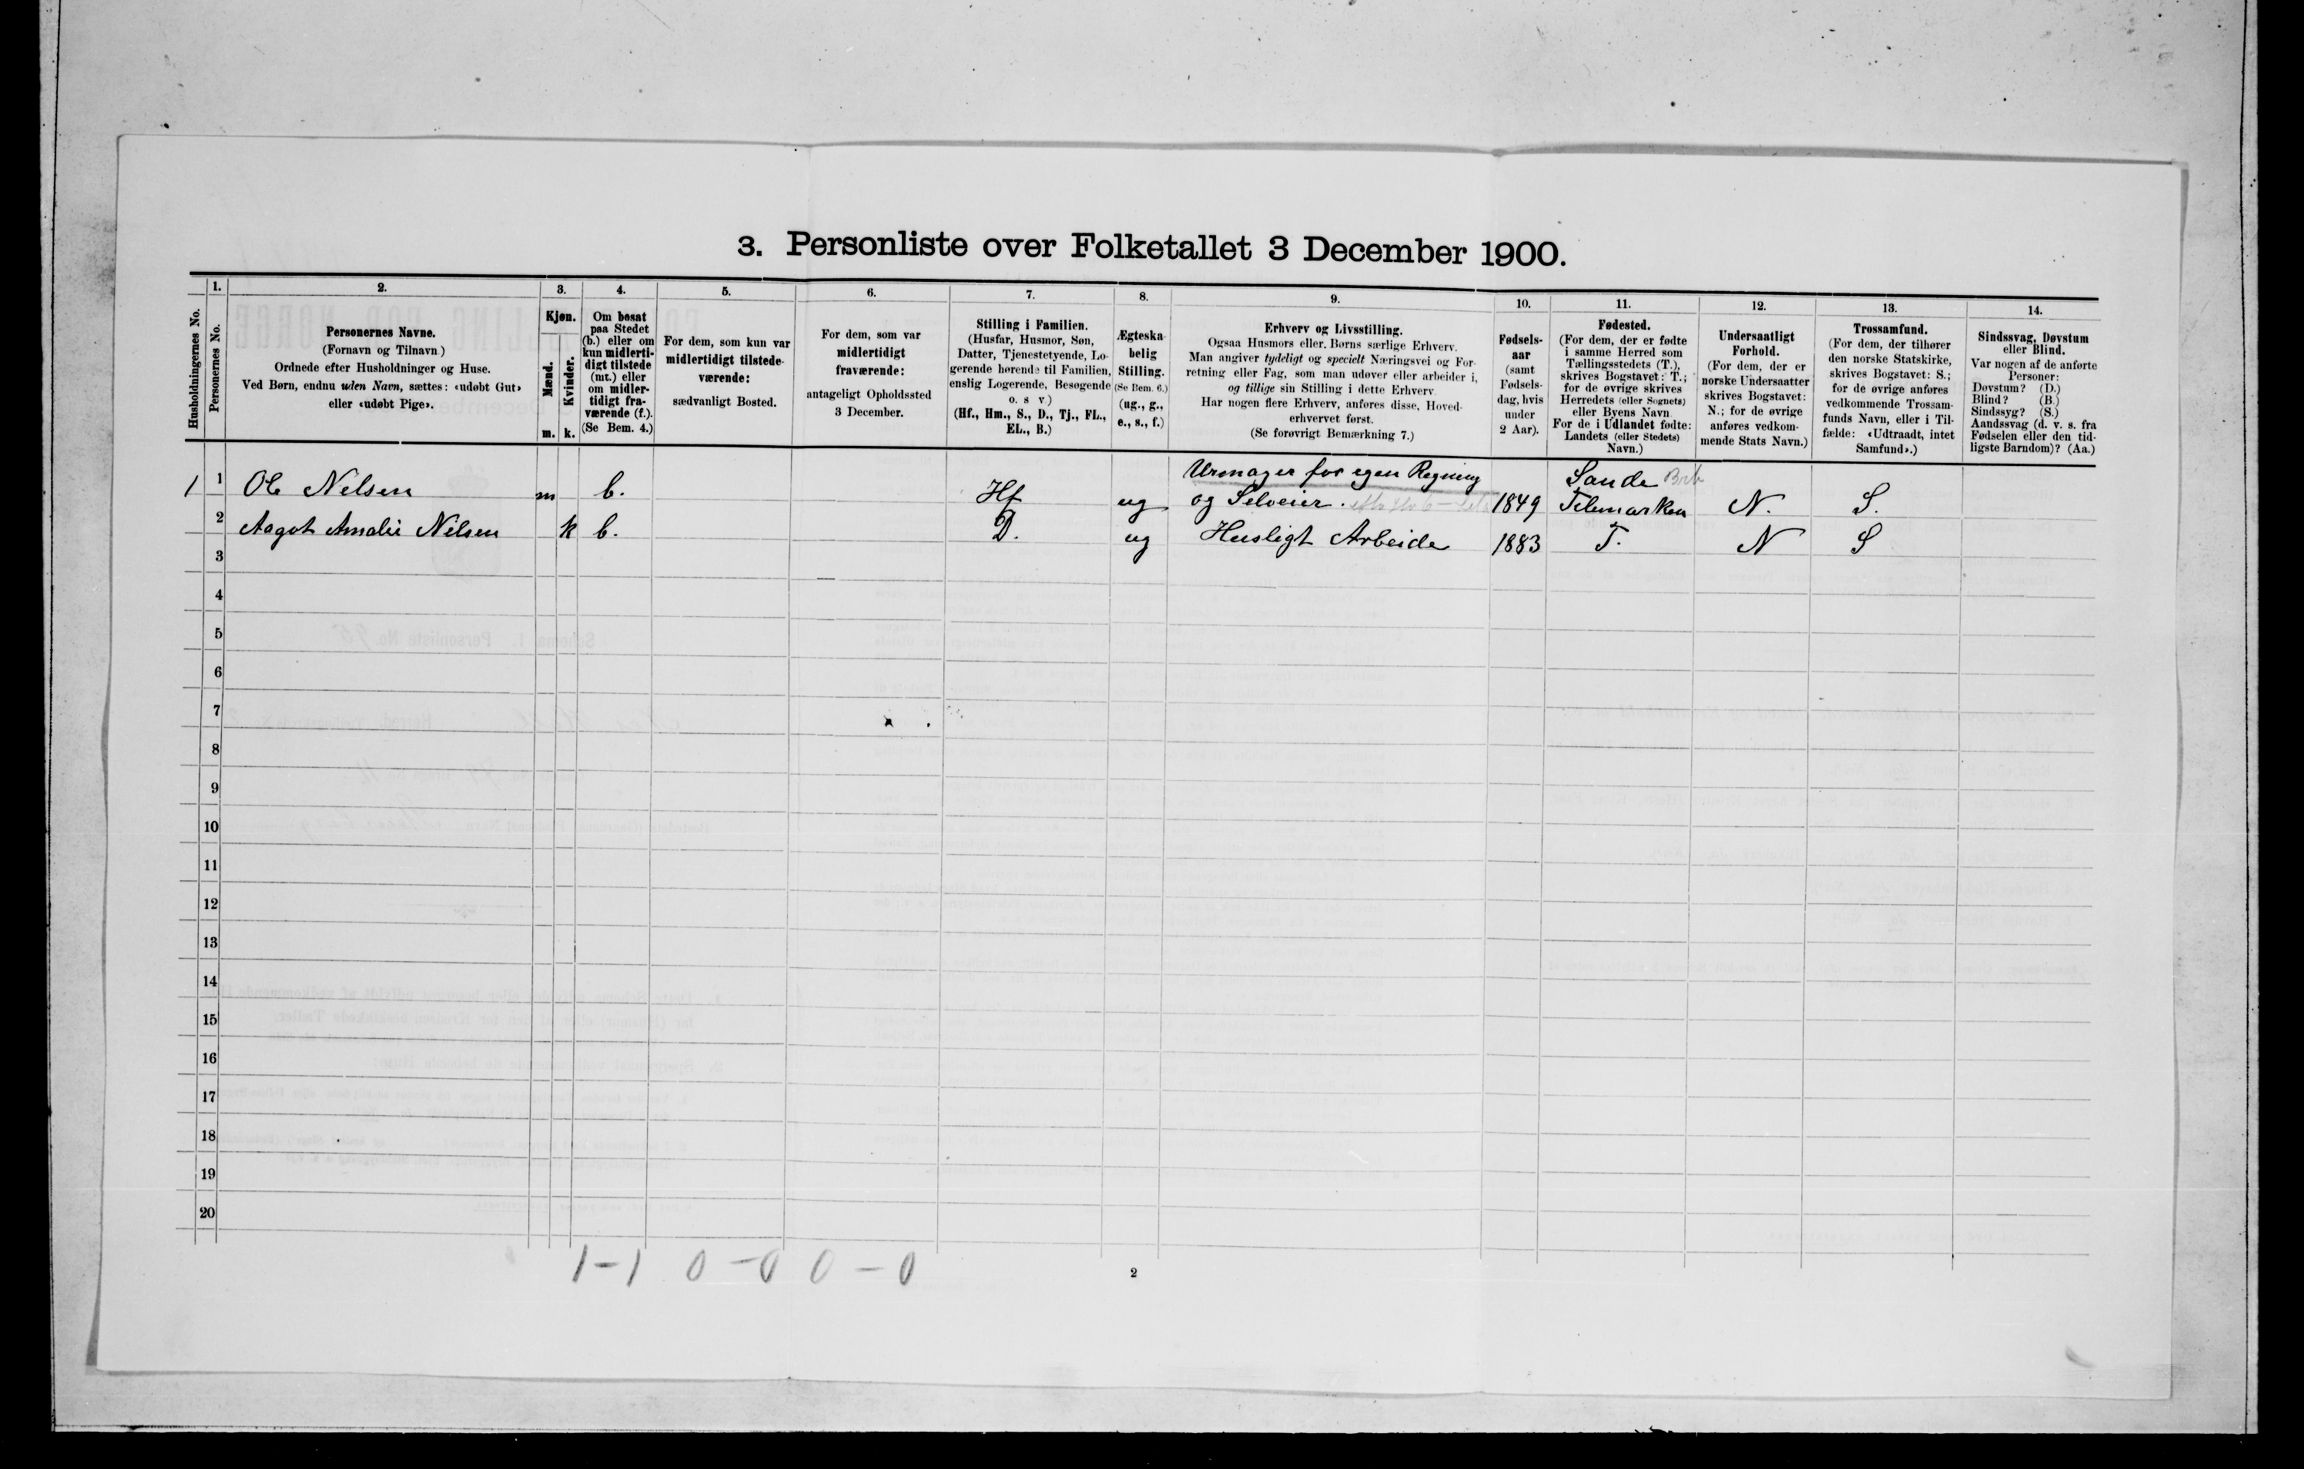 3. Personliste over Folketallet 3 December 1900.
Husholdningernes No.
1.
Personernes No.
2.
Personernes Navne.
(Fornavn og Tilnavn)
Ordnede efter Husholdninger og Huse.
Ved Børn, endnu uden Navn, sættes: «udøbt Gut»
eller «udøbt Pige».
3.
Kjøn.
Mænd.
Kvinder.
m. k.
4.
Om bosat
paa Stedet
(b.) eller om
kun midlerti-
digt tilstede
(mt.) eller
om midler-
tidigt fra-
værende (f.).
(Se Bem. 4.)
5.
For dem, som kun var
midlertidigt tilstede-
værende:
sædvanligt Bosted.
6.
For dem, som var
midlertidigt
fraværende:
antageligt Opholdssted
3 December.
7.
Stilling i Familien.
(Husfar, Husmor, Søn,
Datter, Tjenestetyende, Lo-
gerende hørende til Familien,
enslig Logerende, Besøgende
o. s v.)
(Hf., Hm., S., D., Tj., FL.,
EL., B.)
8.
Ægteska-
belig
Stilling.
(Se Bem. 6.)
(ug., g.,
e., s., f.)
9.
Erhverv og Livsstilling.
Ogsaa Husmors eller. Børns særlige Erhverv.
Man angiver tydeligt og specielt Næringsvei og For-
retning eller Fag, som man udøver eller arbeider i,
og tillige sin Stilling i dette Erhverv.
Har nogen flere Erhverv, anføres disse, Hoved-
erhvervet først.
(Se forøvrigt Bemærkning 7.)
10.
Fødsels-
aar
(samt
Fødsels-
dag, hvis
under
2 Aar).
11.
Fødested.
(For dem, der er fødte
i samme Herred som
Tællingsstedets (T.),
skrives Bogstavet: T.;
for de øvrige skrives
Herredets (eller Sognets)
eller Byens Navn
For de i Udlandet fødte:
Landets (eller Stedets)
Navn.)
12.
Undersaatligt
Forhold.
(For dem, der er
norske Undersaatter
skrives Bogstavet:
N.; for de øvrige
anføres vedkom-
mende Stats Navn.)
13.
Trossamfund.
(For dem, der tilhører
den norske Statskirke,
skrives Bogstavet: S.;
for de øvrige anføres
vedkommende Trossam-
funds Navn, eller i Til-
fælde: «Udtraadt, intet
Samfund».)
14.
Sindssvag, Døvstum
eller Blind.
Var nogen af de anførte
Personer:
Døvstum? (D.)
Blind? (B.)
Sindssyg? (S.)
Aandssvag (d. v. s. fra
Fødselen eller den tid-
ligste Barndom)? (Aa.)
Urmager for egen Regning Sande
1 1 Ole Nelsen m b. Hf ug og Selveier. 1849 Telemarken N. S.
2 Aagot Amalie Nilsen k b. D. ug Husligt Arbeide 1883 T. N S
3
4
5
6
7
8
9
10
11
12
13
14
15
16
17
18
19
20
1-1 0-0 0-0
2